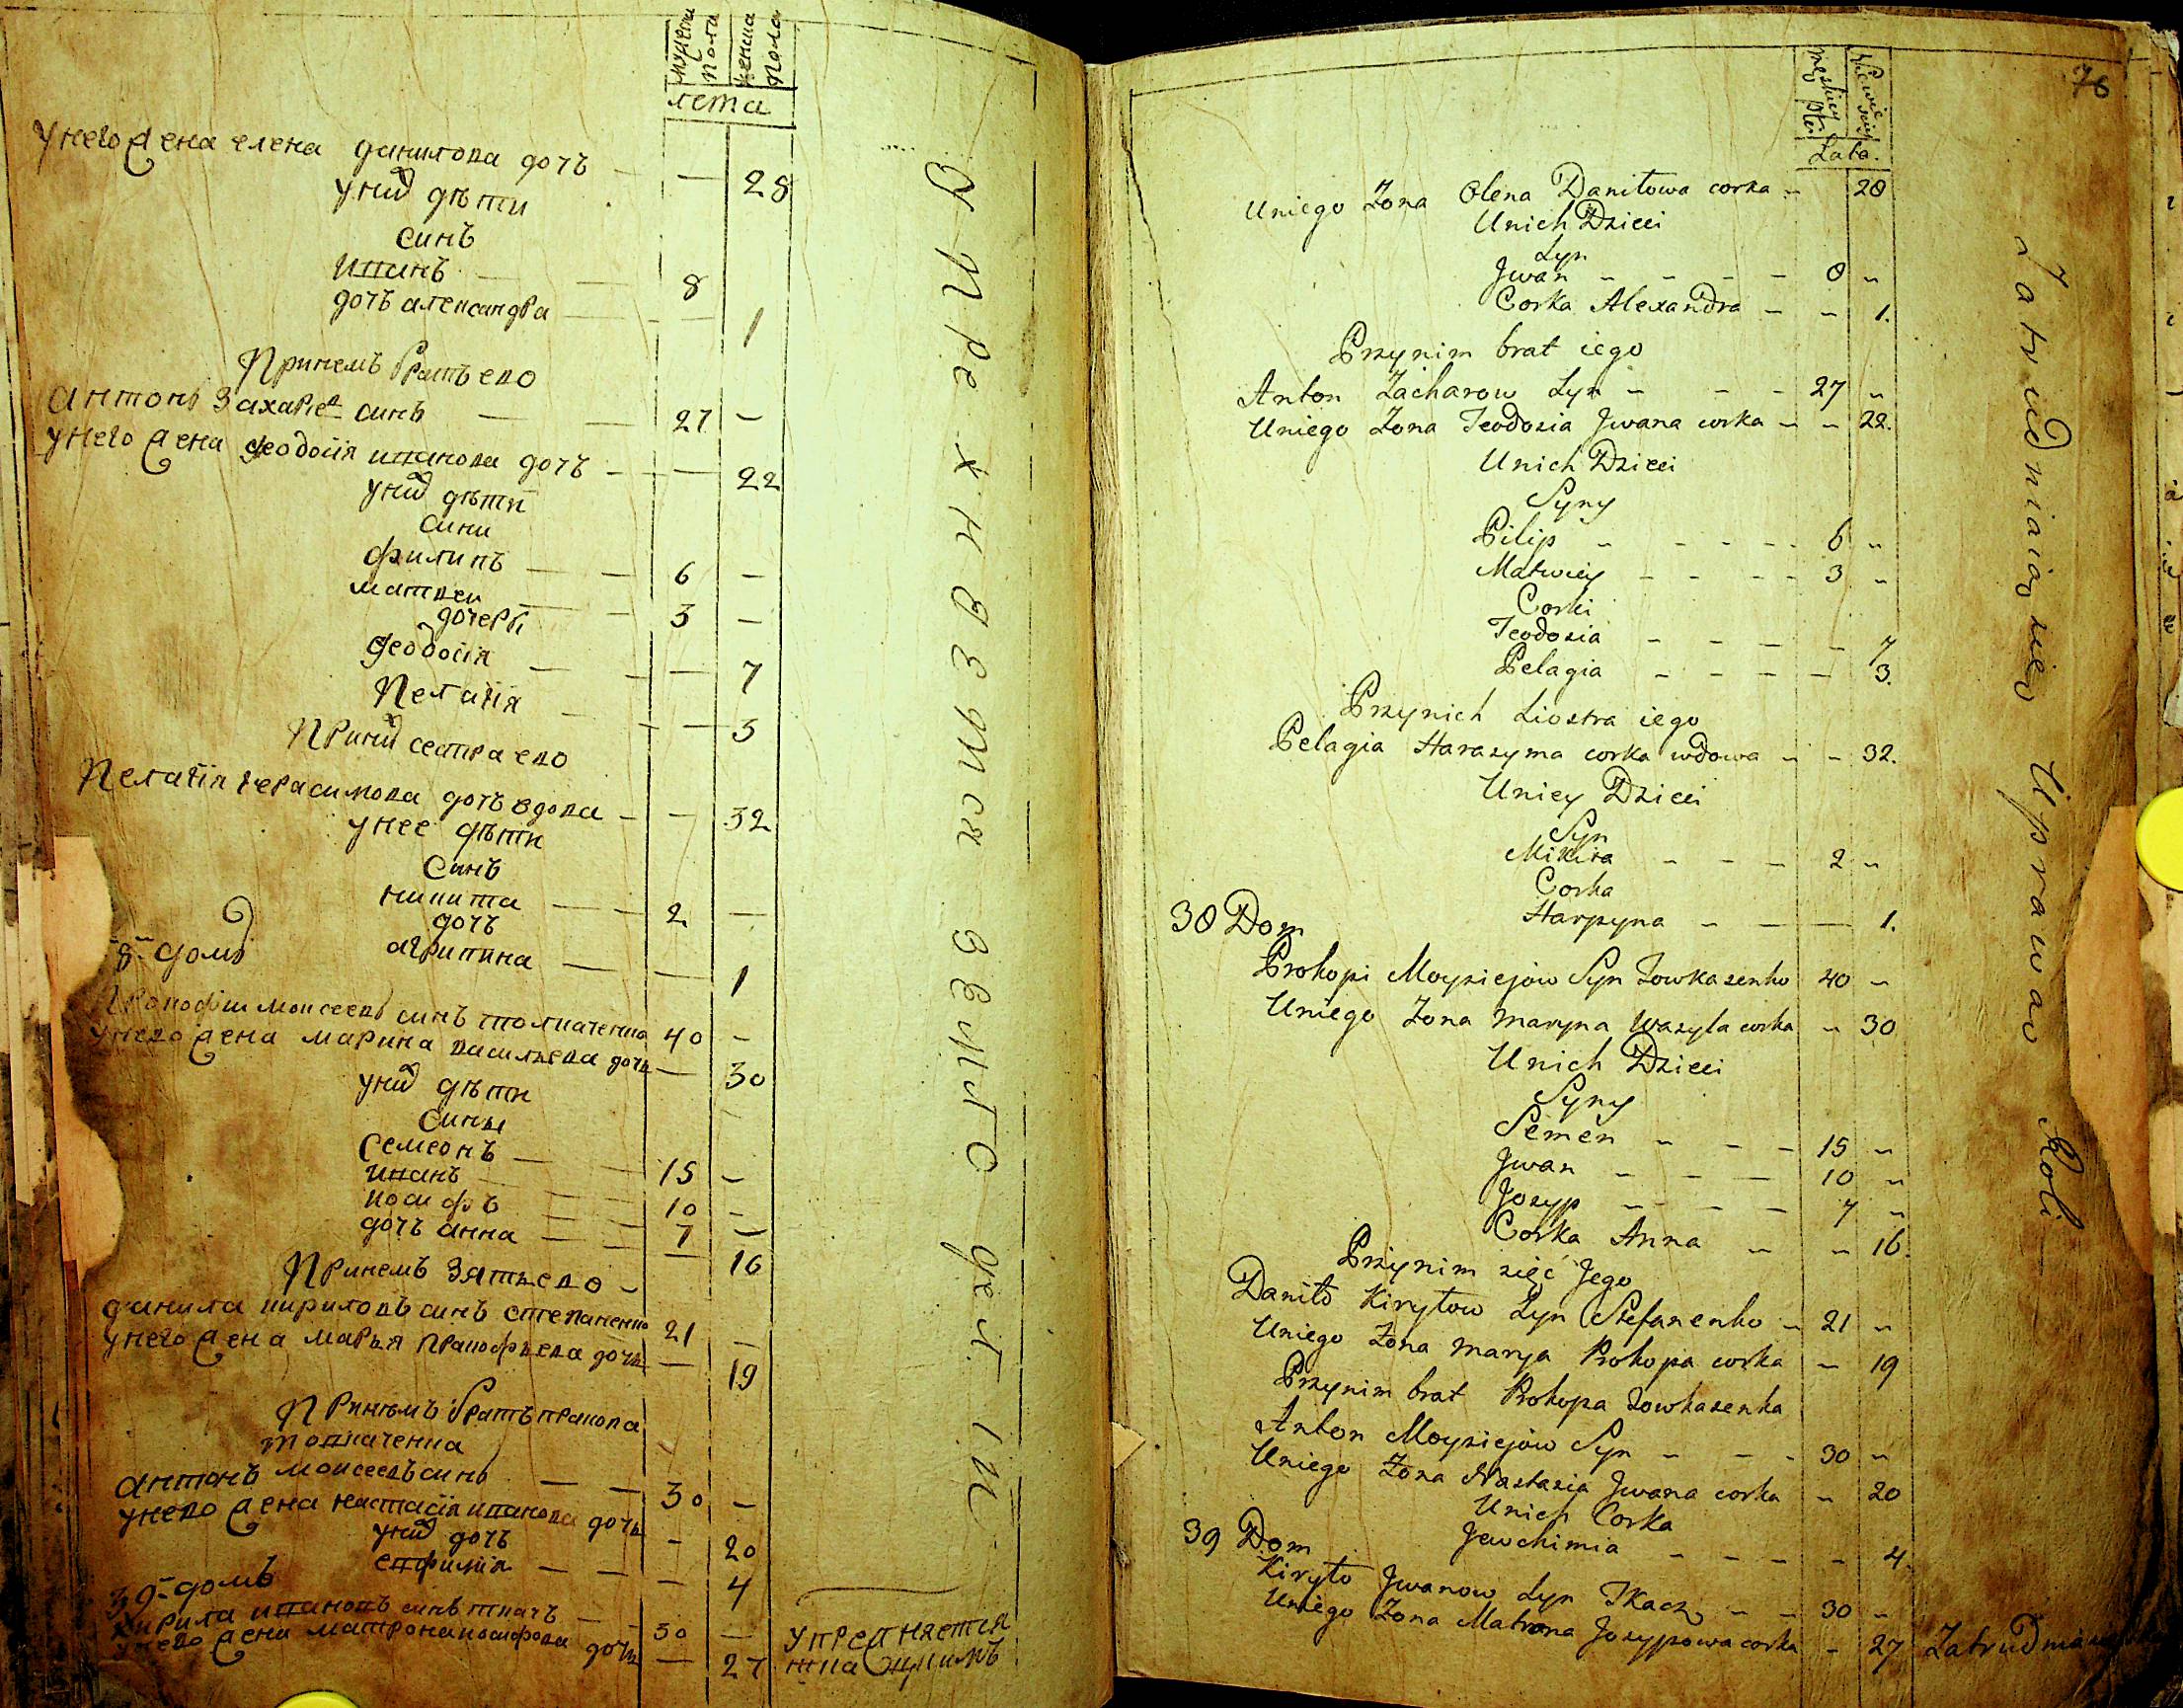 мужеска пола
женска пола
лета
у него жена елена данилова дочь — — 28
у них дѣти
синъ
иванъ — — 8
дочь александра — — 1
При нем братъ ево
антонъ Захариев синъ — — 27 —
у него жена феодосія иванова дочъ — — 22
у них дѣти
сини
филипъ — — 6 —
матвеи — 3 —
дочери
феодосія — — — 7
Пелагія — — — 3
При них сестра ево
Пелагія герасимова дочъ вдова — — 32
у нее дѣти
Синъ
никита — — 2 —
дочъ
агрипина — — 1
8 домъ
Прокофіи моисеевъ синъ толкаченко 40 —
у него жена марина васильева дочь — 30
у них дѣти
Сины
Семеонъ — — 15 —
иванъ — — 10 —
иосифъ — — 7 —
дочъ анна — — — 16
При немъ зять ево —
данила кириловъ синъ степаненко 21 —
у него жена марья Пракофьева дочь — 19
При немъ братъ пракопа
толкаченка
антонъ моисеевъ синъ — — 30 —
у нево жена настасія иванова дочь — 20
у них дочъ
евфимія — — — 4
39 домъ
Кирила ивановъ синъ ткачъ — 30 —
у нево жена матрона иосифова дочь — 27
упражняется
Męskiey Płci
Lata.
76
Uniego Zona Olena Daniłowa corka — 28
Unich Dzieci
Syn
Jwan — — — — 8 —
Corka Alexandra — — 1.
Przynim brat iego
Anton Zacharow Syn — — — 27 —
Uniego Zona Teodozia Jwana corka — — 22.
Unich Dzieci
Syny
Pilip — — — — 6 —
Matwiey — — — — 3 —
Corki
Teodozia — — — — — 7
Pelagia — — — — 3.
Przynich Siostra iego
Pelagia Harasyma corka wdowa — — 32.
Uniey Dzieci
Syn
Mikita — — — 2 —
Corka
Harpyna — — — 1.
38 Dom
Prokopi Moysiejow Syn Towkasenko 40 —
Uniego Zona Maryna Wasyla corka — 30
Unich Dzieci
Syny
Semen — — — 15 —
Jwan — — — 10 —
Jozyp — — — — 7 —
Corka Anna — — 16.
Przynim zięć Jego
Daniło Kiryłow Syn Stefanenko — 21 —
Uniego Zona Marya Prokopa corka — 19
Przynim brat Prokopa Towkasenka
Anton Moysiejow Syn — — — 30 —
Uniego Zona Nastazia Jwana corka — 20
Unich Corka
Jewchimia — — — — 4.
39 Dom
Kiryło Jwanow Syn Tkacz — — 30 —
Uniego Zona Matrona Jozypowa corka — 27
Zatrudniaią sie Uprawą Roli